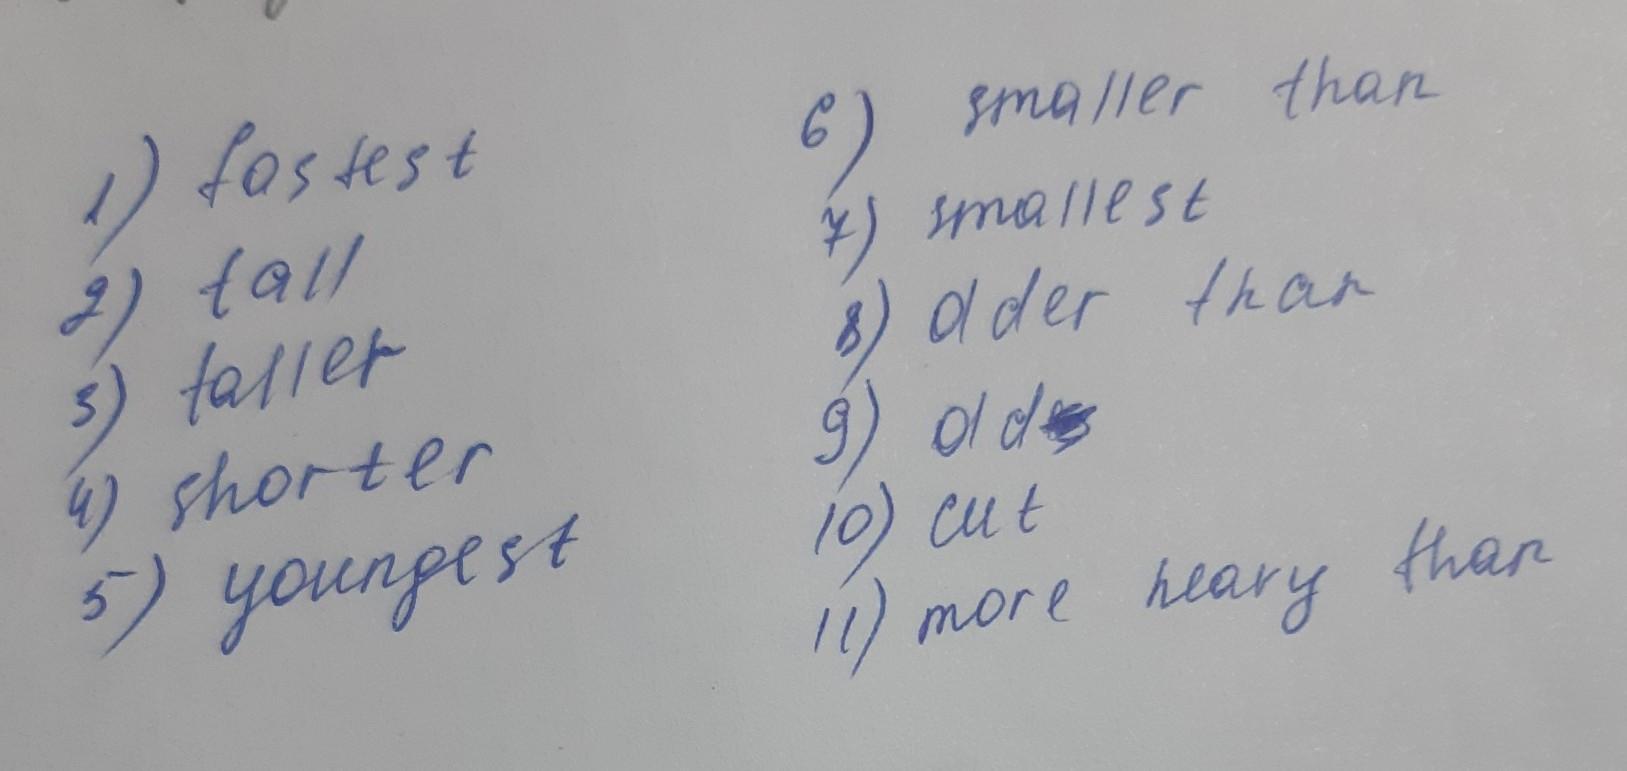 1) fastest
2) tall
3) taller
4) shorter
5) youngest
6) smaller than
7) smallest
8) older than
9) old
10) cut
11) more heavy than